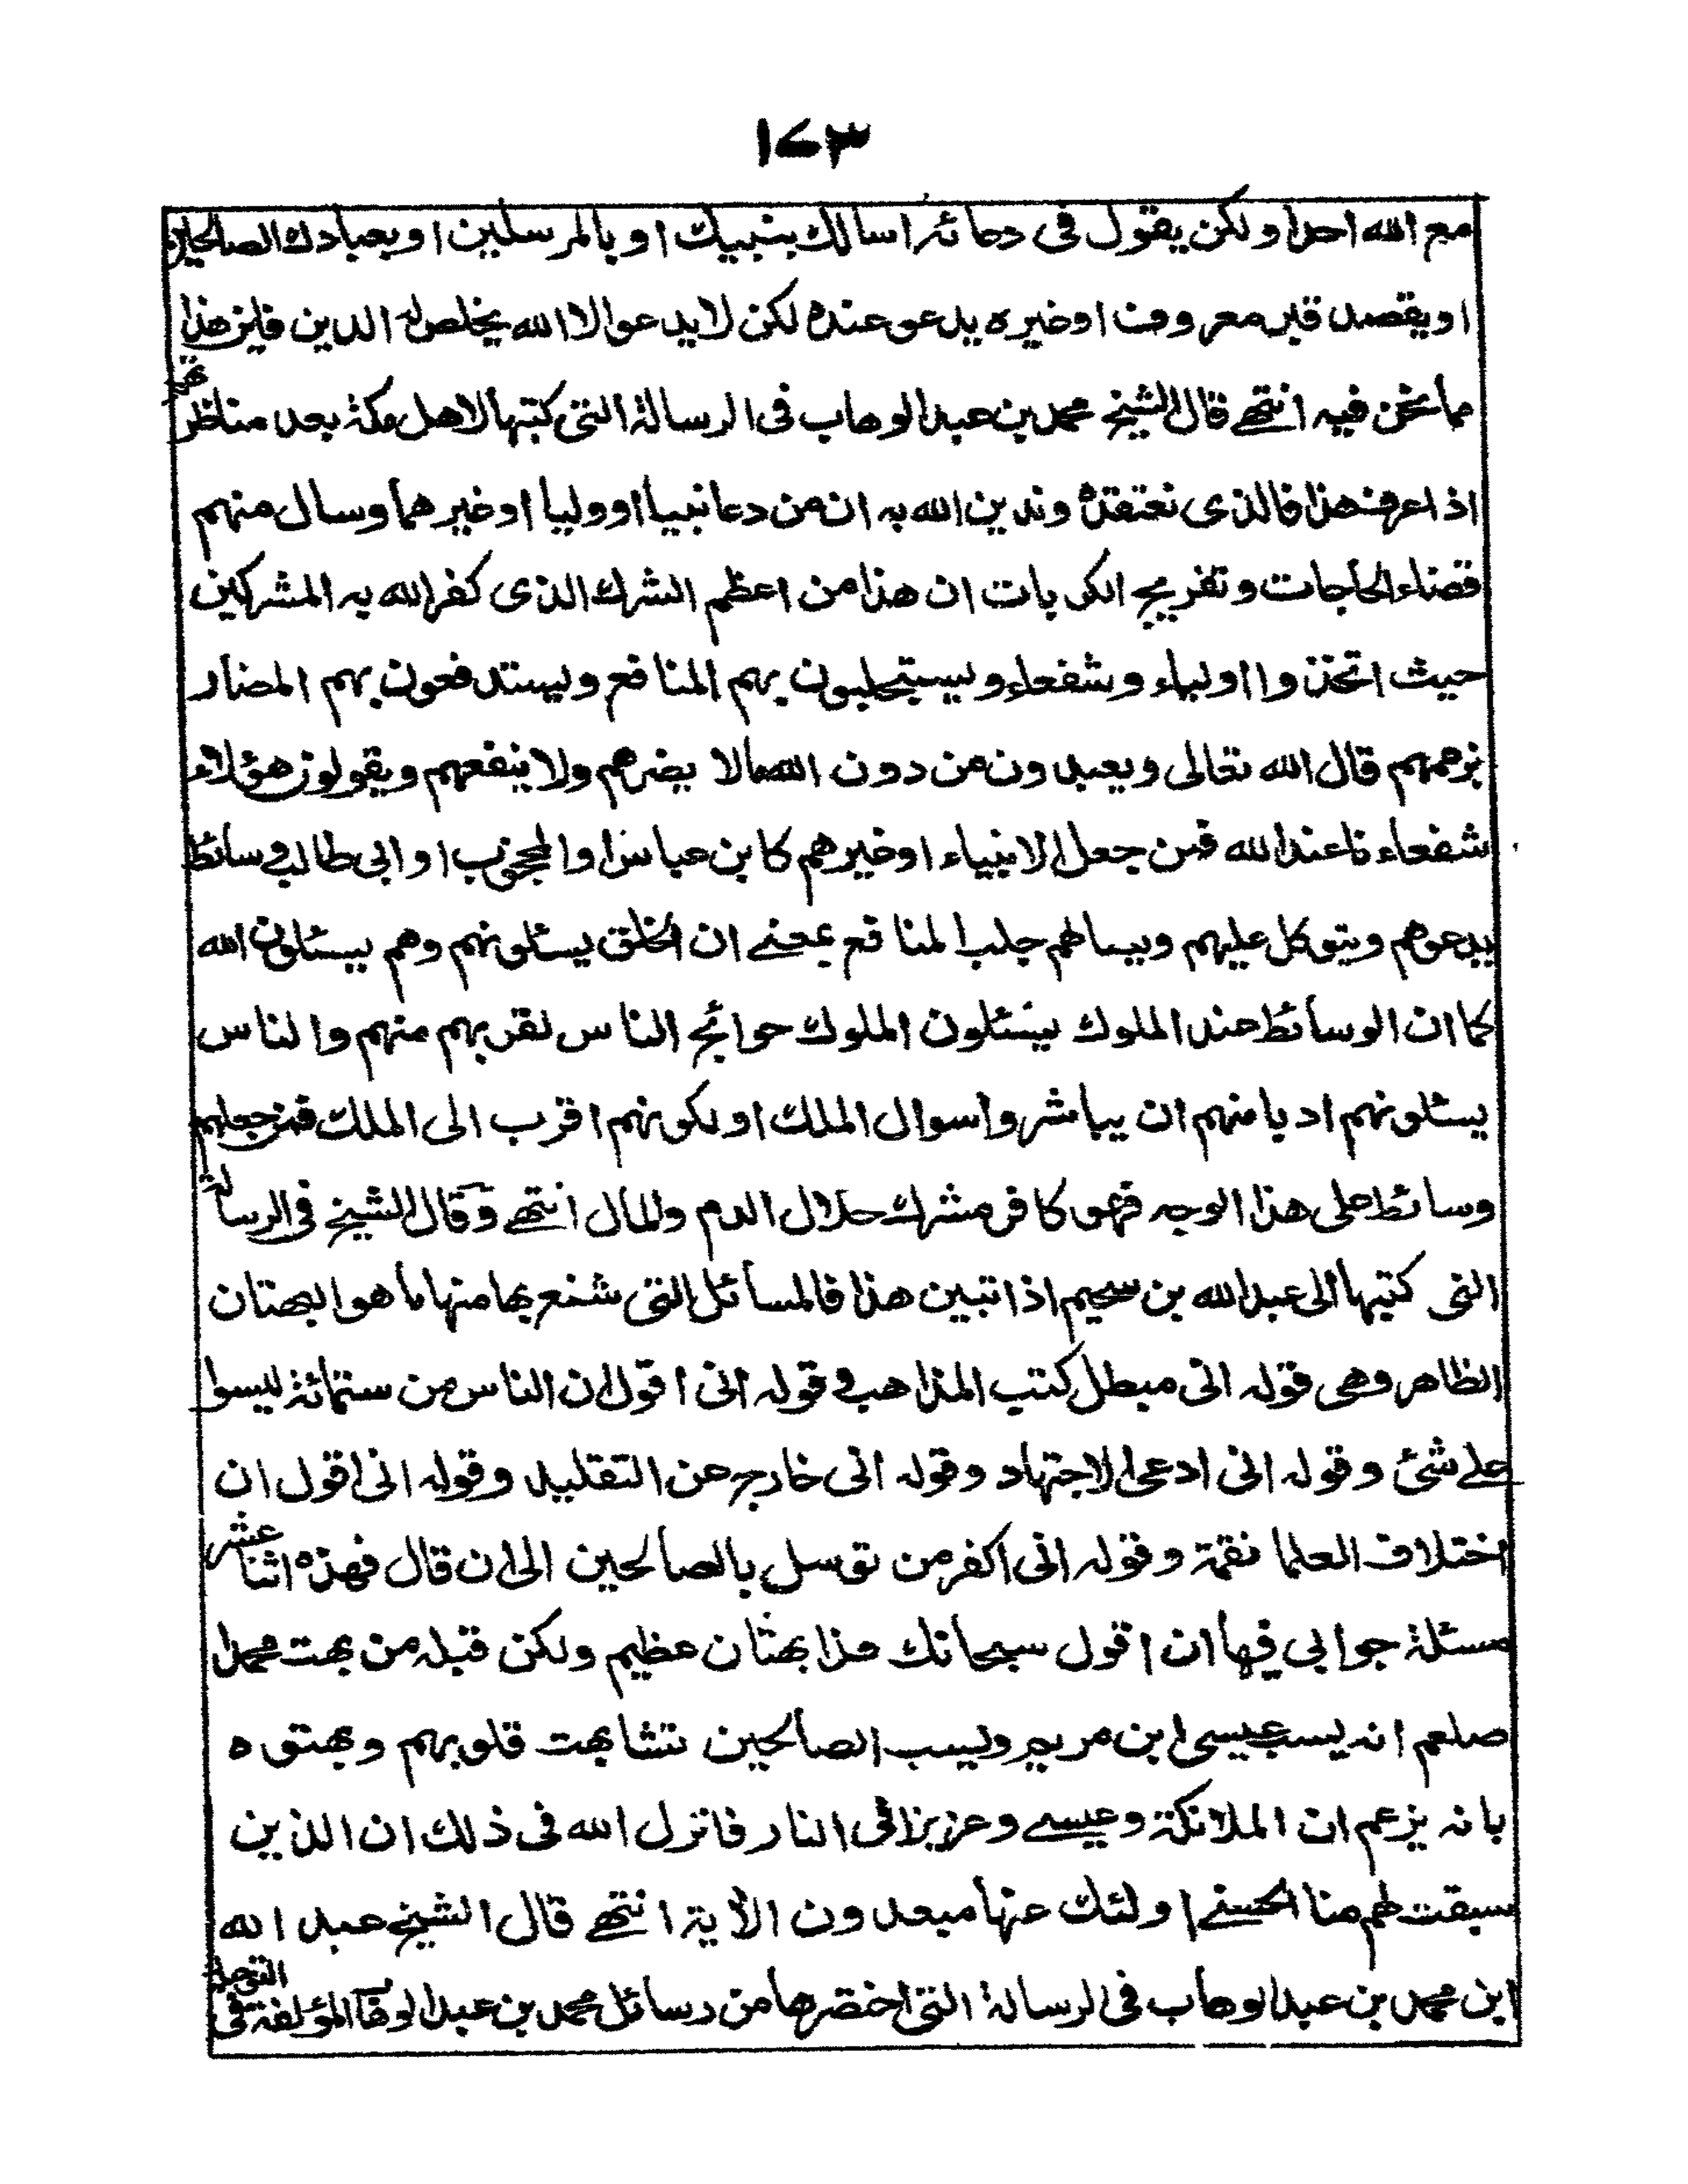 ١٧٣
مع الله احدا ولكن يقول فى دعائه اسالك بنبيك او بالمرسلين او بعبادك الصالحين
او يقصد قبر معروف او غيره يدعو عنده لكن لا يدعو الا الله يخلص له الدين فاين هذا
مما نحن فيه انتهى قال الشيخ محمد بن عبد الوهاب فى الرسالة التى كتبها لاهل مكة بعد مناظرتهم
اذا عرف هذا فالذى نعتقده وندين الله به ان من دعا نبيا او وليا او غيرهما وسال منهم
قضاء الحاجات وتفريج الكربات ان هذا من اعظم الشرك الذى كفر الله به المشركين
حيث اتخذوا اولياء وشفعاء ويستجلبون بهم المنافع ويستدفعون بهم المضار
بزعمهم قال الله تعالى ويعبدون من دون الله مالا يضرهم ولا ينفعهم ويقولون هؤلاء
شفعاءنا عند الله فمن جعل الانبياء او غيرهم كابن عباس او المحجوب او ابى طالب وسائط
يدعوهم ويتوكل عليهم ويسالهم جلب المنافع بمعنى ان الخلق يسئلونهم وهم يسئلون الله
كما ان الوسائط عند الملوك يسئلون الملوك حوائج الناس لقربهم منهم والناس
يسئلونهم ادبا منهم ان يباشروا سوال الملك او لكونهم اقرب الى الملك فمن جعلهم
وسائط على هذا الوجه فهو كافر مشرك حلال الدم والمال انتهى وقال الشيخ فى الرسالة
التى كتبها الى عبد الله بن سحيم اذا تبين هذا فالمسائل التى شنع بها منها ما هو البهتان
الظاهر وهى قوله انى مبطل كتب المذاهب وقوله انى اقول ان الناس من ستمائة ليسوا
على شئ وقوله انى ادعى الاجتهاد وقوله انى خارج عن التقليد وقوله انى اقول ان
اختلاف العلما نقمة وقوله انى اكفر من توسل بالصالحين الى ان قال فهذه اثنا عشر
مسئلة جوابى فيها ان اقول سبحانك هذا بهتان عظيم ولكن قبله من بهت محمدا
صلعم انه يسب عيسى ابن مريم ويسب الصالحين تشابهت قلوبهم وبهتوه
بانه يزعم ان الملائكة وعيسى وعزيزا فى النار فانزل الله فى ذلك ان الذين
سبقت لهم منا الحسنى اولئك عنها مبعدون الآية انتهى قال الشيخ عبد الله
ابن محمد بن عبد الوهاب فى الرسالة التى اختصرها من رسائل محمد بن عبد الوهاب المؤلفة فى